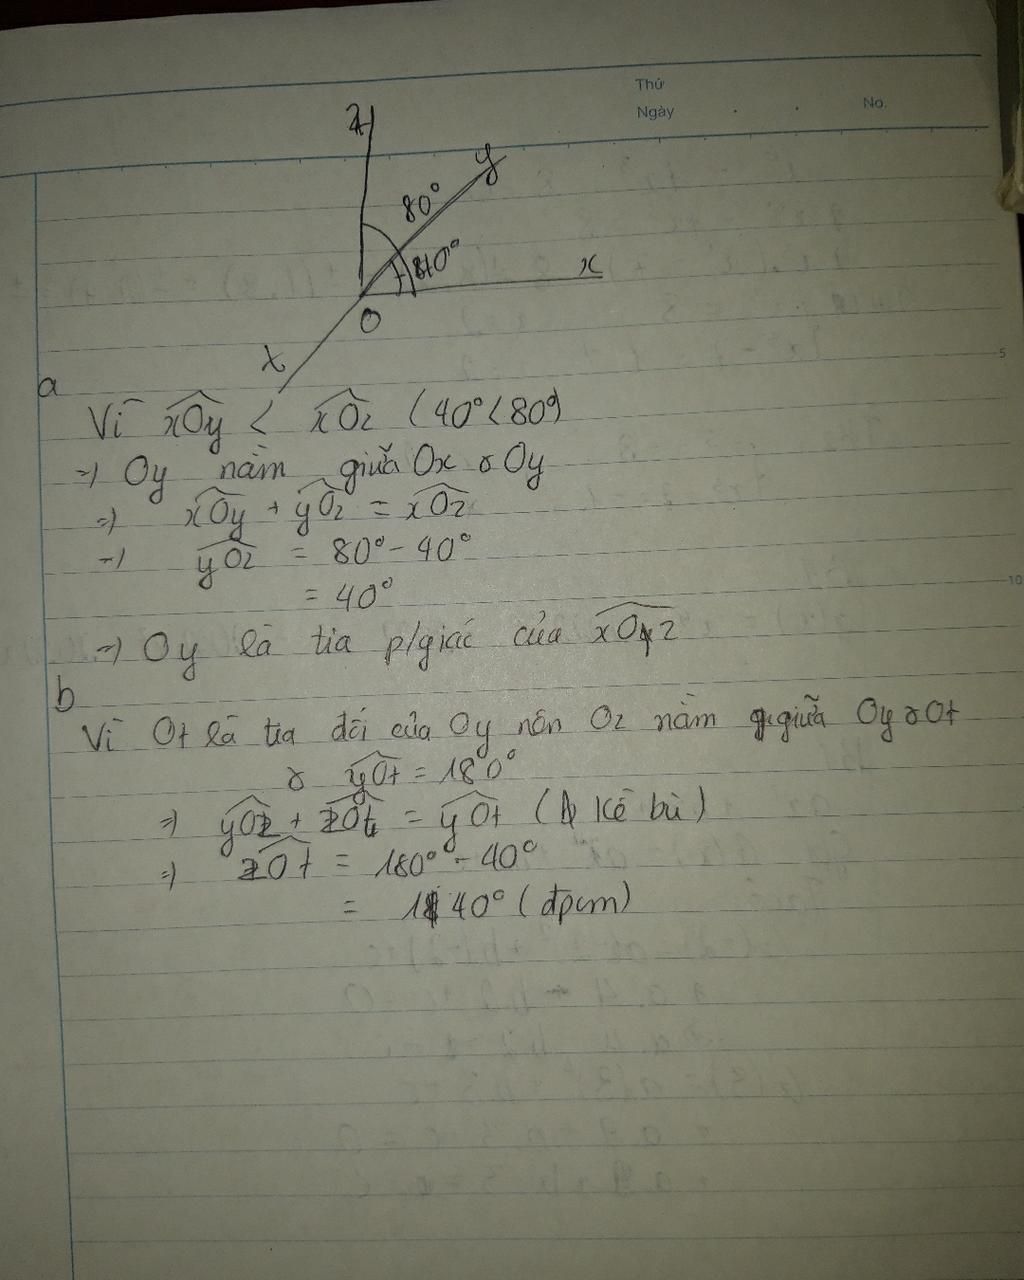 Thứ
Ngày . . No.
z
y
80°
40°
x
O
t
5
a
Vì xOy < xOz (40° < 80°)
=> Oy nằm giữa Ox & Oy
=> xOy + yOz = xOz
=> yOz = 80° - 40°
= 40°
10
=> Oy là tia p/giác của xOz
b
Vì Ot là tia đối của Oy nên Oz nằm giữa Oy & Ot
& yOt = 180°
=> yOz + zOt = yOt ( kề bù)
=> zOt = 180° - 40°
= 140° (đpcm)